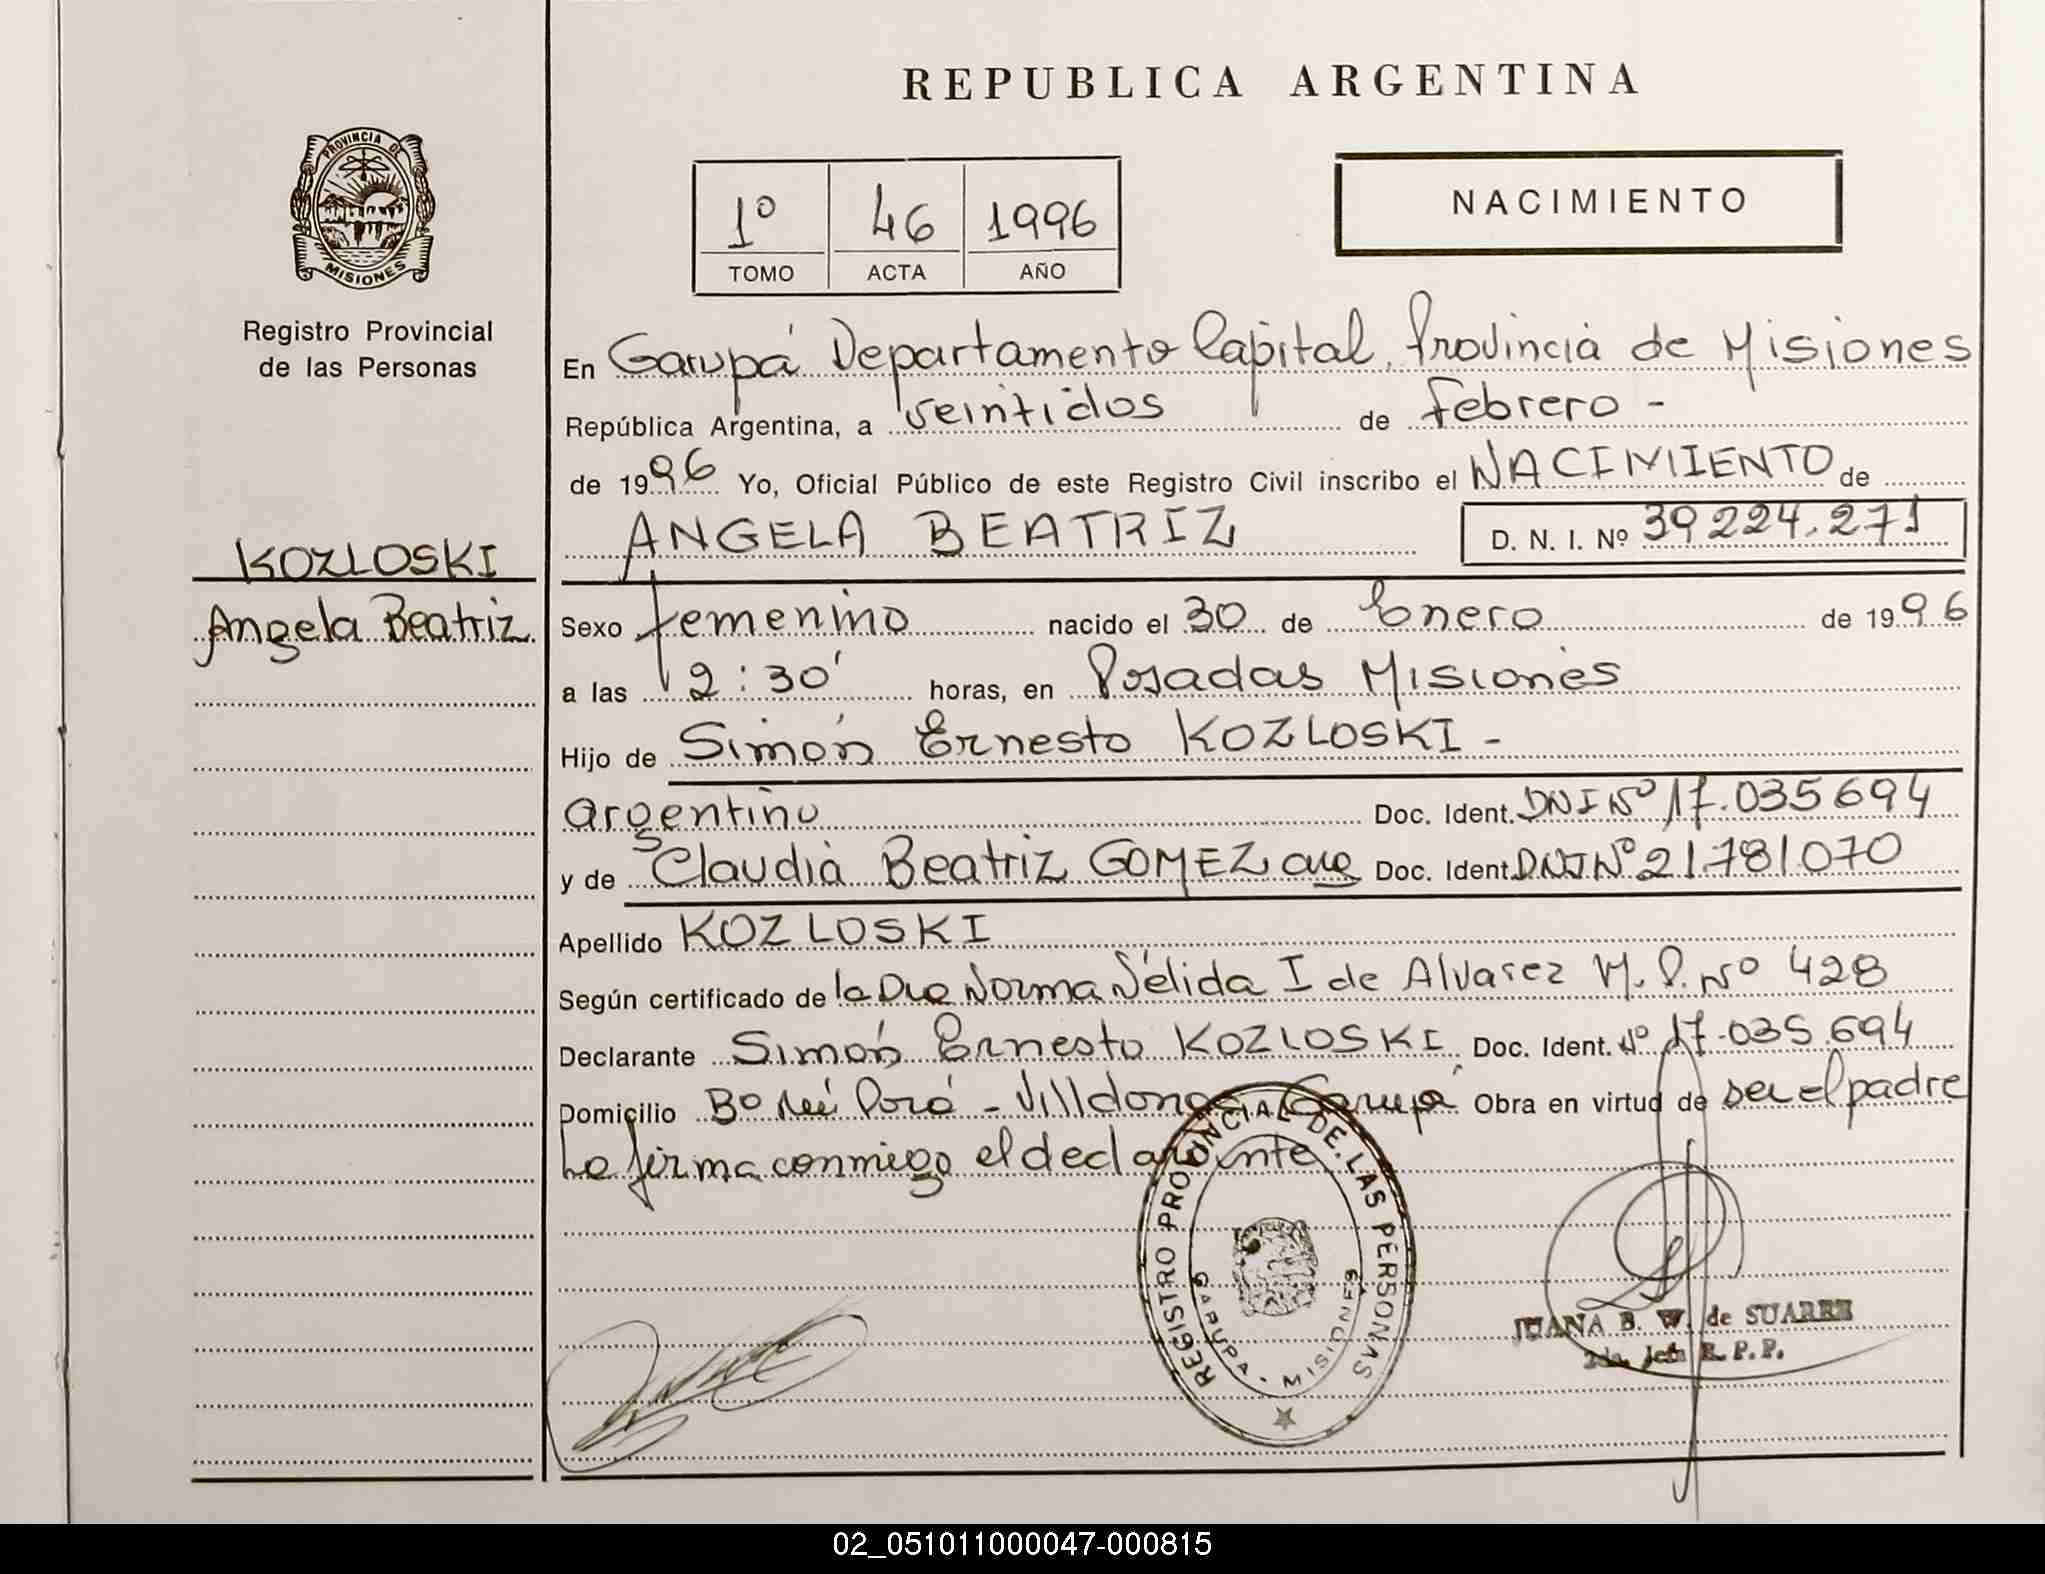 REPUBLICA ARGENTINA
PROVINCIA DE
MISIONES
Registro Provincial
de las Personas
1º 46 1996
TOMO ACTA AÑO
NACIMIENTO
En Garupá Departamento Capital, Provincia de Misiones
República Argentina, a veintidos de febrero -
de 1996 Yo, Oficial Público de este Registro Civil inscribo el NACIMIENTO de
ANGELA BEATRIZ D. N. I. Nº 39224.271
KOZLOSKI
Angela Beatriz
Sexo femenino nacido el 30 de Enero de 1996
a las 12:30' horas, en Posadas Misiones
Hijo de Simón Ernesto KOZLOSKI -
argentino Doc. Ident. DNI Nº 17.035694
y de Claudia Beatriz GOMEZ arg Doc. Ident. DNI Nº 21.781070
Apellido KOZLOSKI
Según certificado de la Dra Norma Nélida I de Alvarez M.P. Nº 428
Declarante Simón Ernesto KOZLOSKI Doc. Ident. Nº 17.035.694
Domicilio Bº Ñu Porá - Villalonga Garupá Obra en virtud de ser el padre
La firma conmigo el declarante
REGISTRO PROVINCIAL DE LAS PERSONAS
GARUPA - MISIONES
JUANA B. W. de SUAREZ
2da. Jefa R.P.P.
02_051011000047-000815